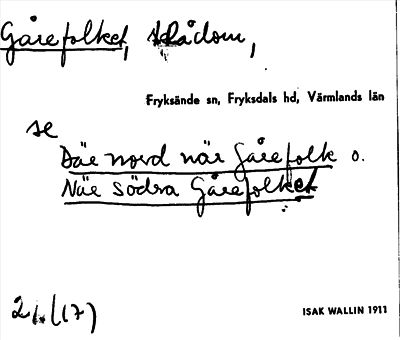 Gårefolket, trådom,
Fryksände sn, Fryksdals hd, Värmlands län
se
Där nord när Gårefolk o.
När södra Gårefolket
ISAK WALLIN 1911